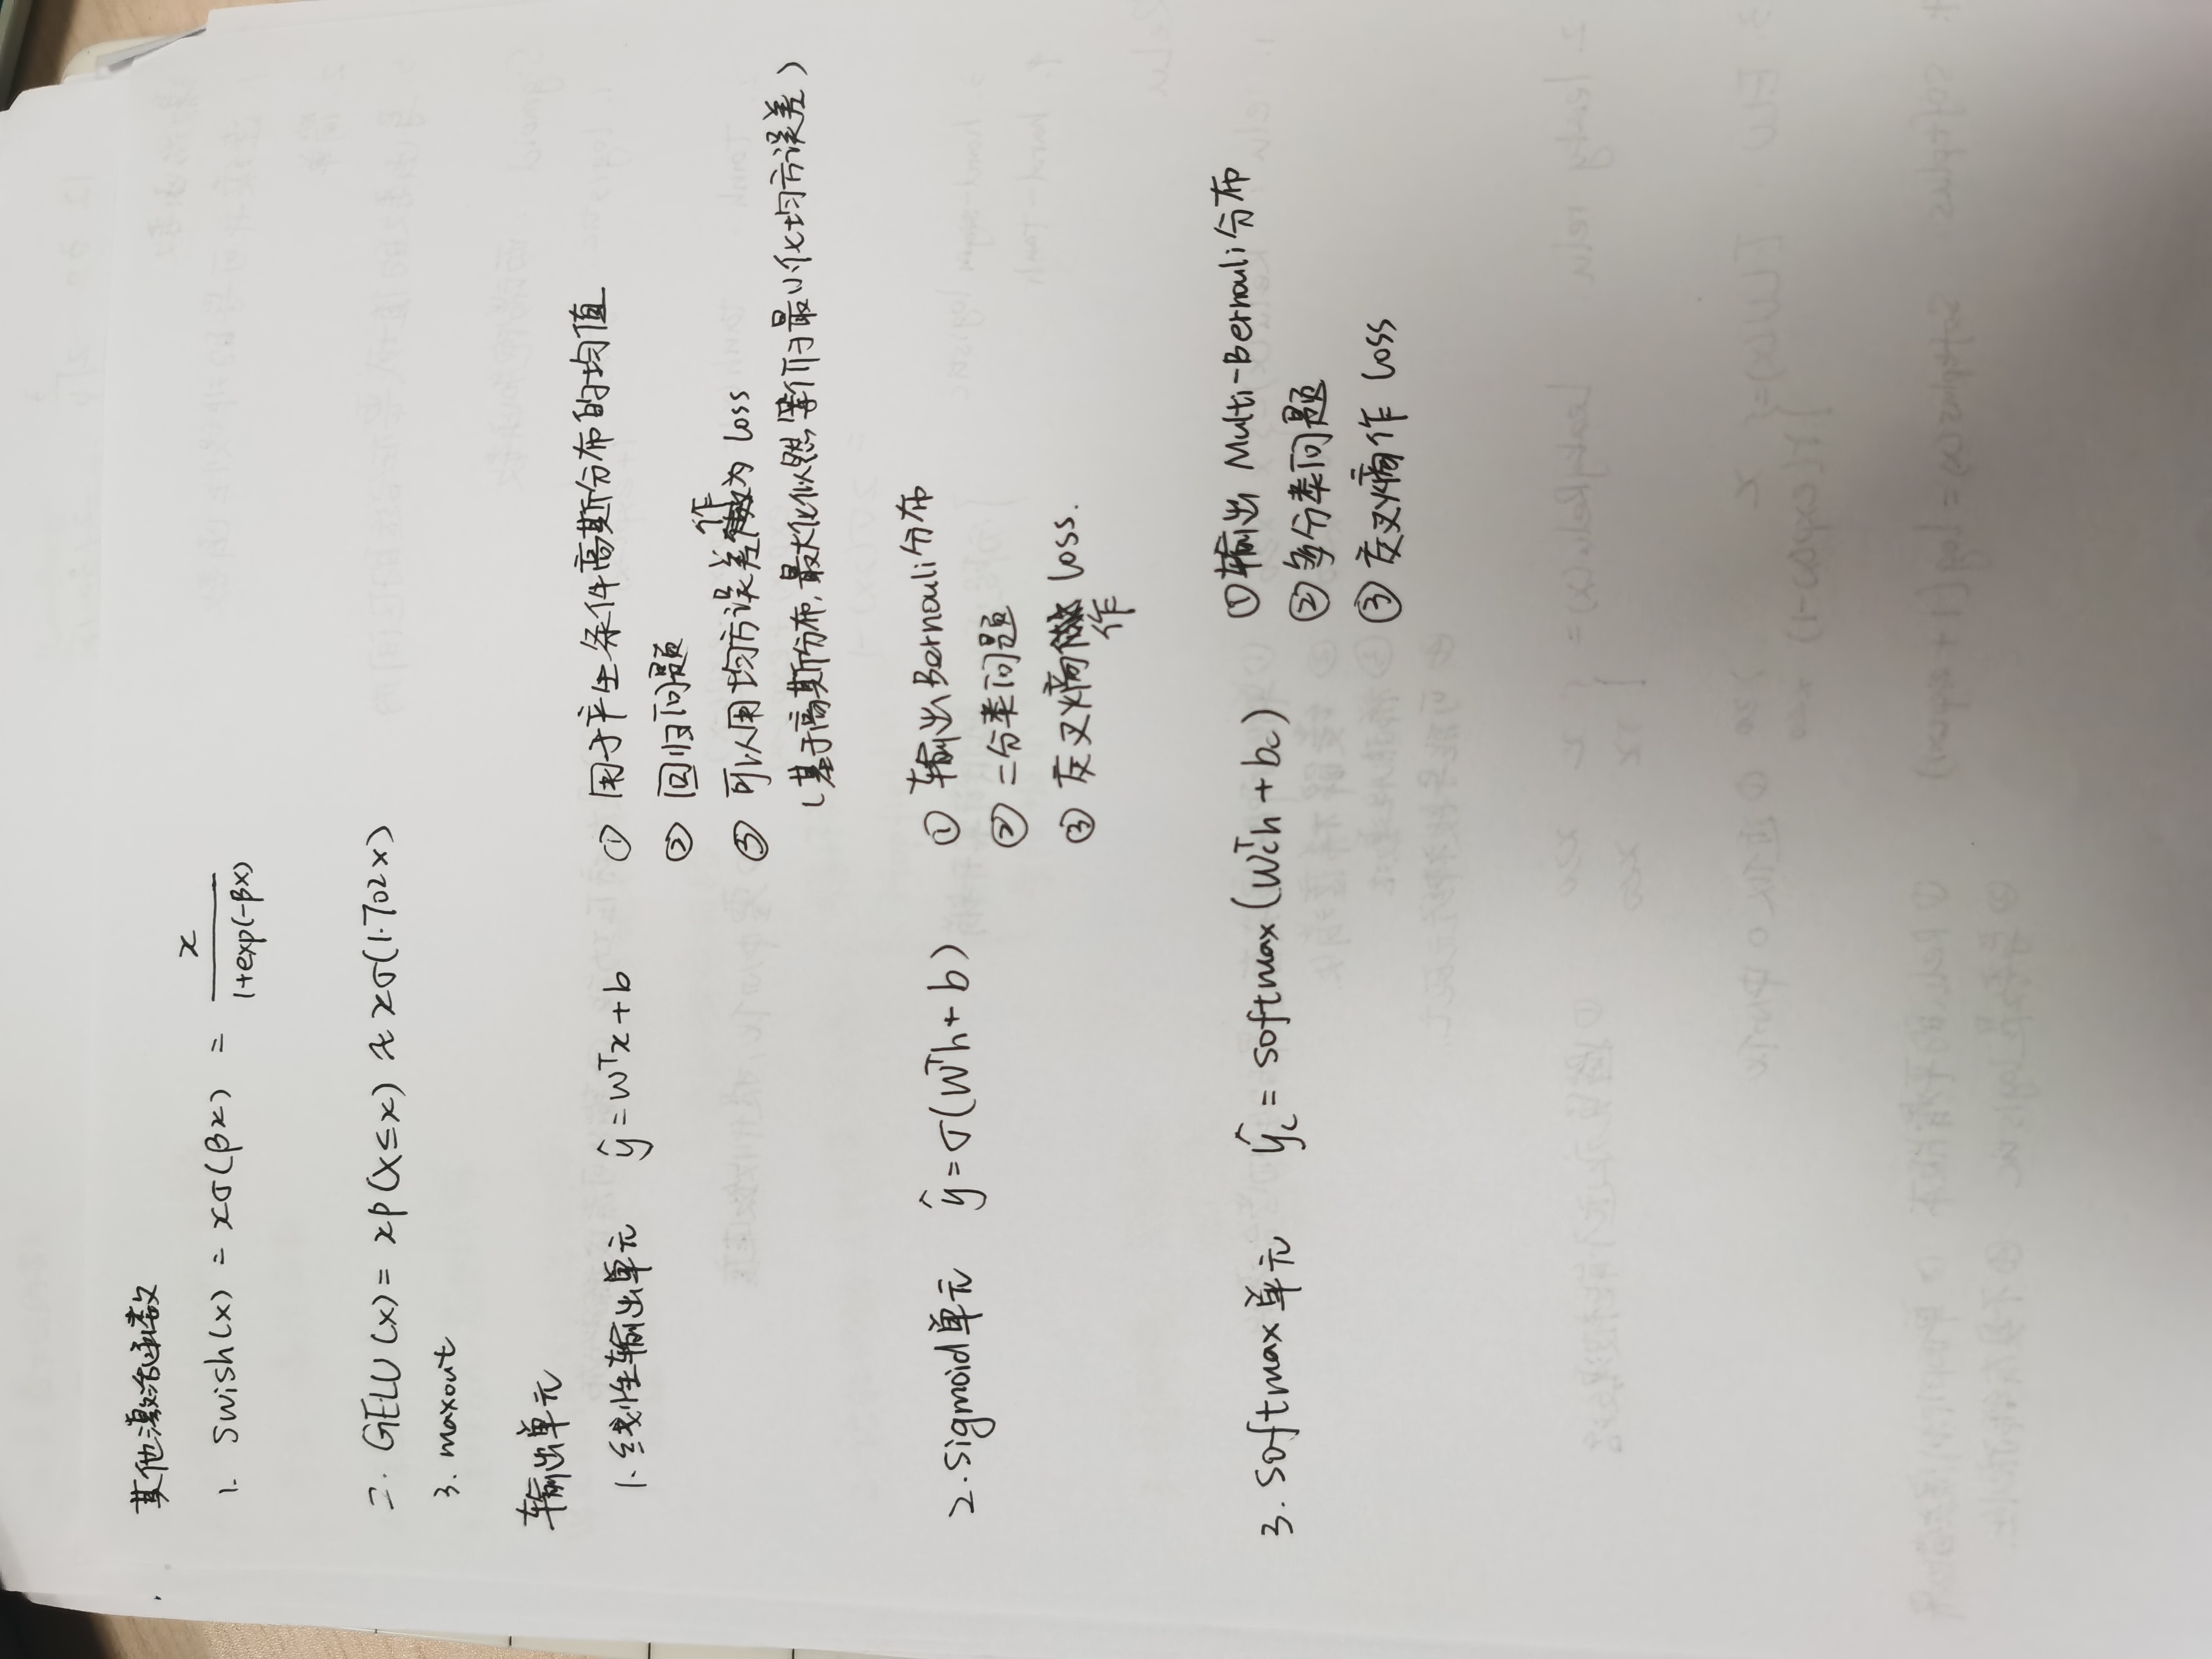 其他激活函数
1. Swish(x) = xσ(βx) = x / 1+exp(-βx)
2. GELU(x) = xp(X≤x) ≈ xσ(1.702x)
3. maxout
输出单元
1. 线性输出单元 ŷ = wᵀx + b ① 用于产生条件高斯分布的均值
② 回归问题
③ 可以用均方误差作为 loss
(基于高斯分布,最大化似然等价于最小化均方误差)
2. Sigmoid单元 ŷ = σ(Wᵀh + b) ① 输出Bernouli分布
② 二分类问题
③ 交叉熵作 loss.
3. Softmax 单元 ŷc = softmax(Wcᵀh + bc) ① 输出 Multi-Bernouli分布
② 多分类问题
③ 交叉熵作 loss